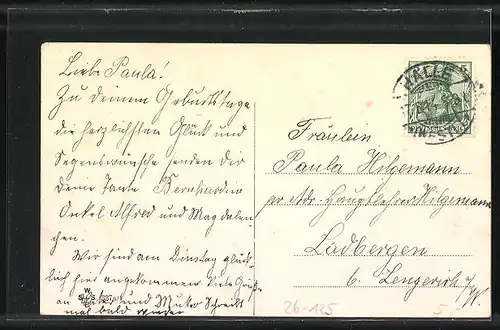 Liebe Paula!
Zu deinem Geburtstage
die herzlichsten Glück und
Segenswünsche senden dir
Deine Tante Bernhardin
Onkel Alfred und Magdalen-
chen.
Wir sind am Dinstag glück-
lich hier angekommen Viele Grüße
an Vater und Mutter Schreibt
mal bald wieder
HALLE
Fräulein
Paula Hilgemann
pr Adr. Hauptlehrer Hilgemann
Ladbergen
b. Lengerich i/W.
W
S S B
26-125
5.-